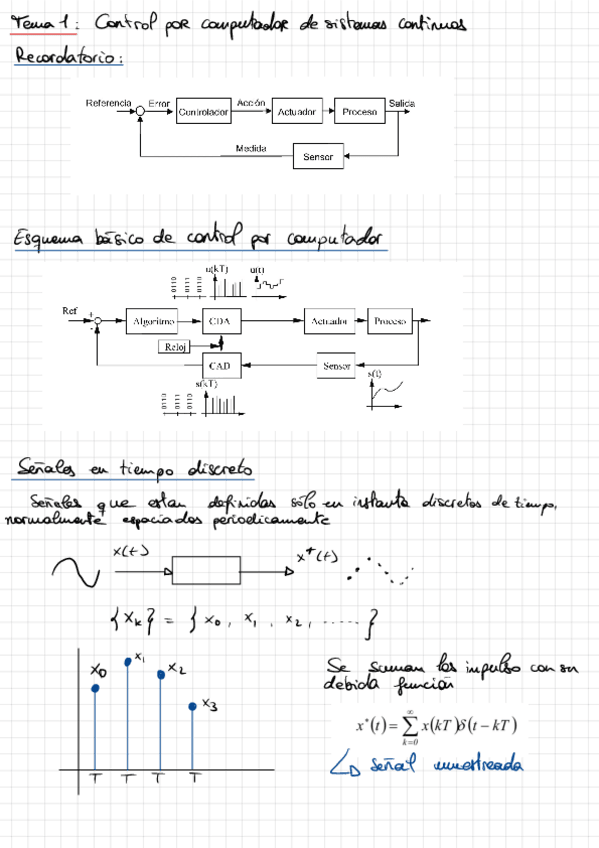 Tema 1: Control por computador de sistemas continuos
Recordatorio:
Referencia Error Controlador Acción Actuador Proceso Salida
Medida
Sensor
Esquema básico de control por computador
0110 1111 0110 u(kT) u(t)
Ref + - Algoritmo CDA Actuador Proceso
Reloj
CAD Sensor
s(kT) s(t)
0110 1111 0110
Señales en tiempo discreto
Señales que estan definidas sólo en instante discretos de tiempo,
normalmente espaciados periodicamente
x(t) x*(t)
{xk} = { x0, x1, x2, ..... }
x0 x1 x2 x3
T T T T
Se suman los impulso con su
debida función
x*(t) = ∑ k=0 ∞ x(kT)δ(t − kT)
↳ señal muestreada